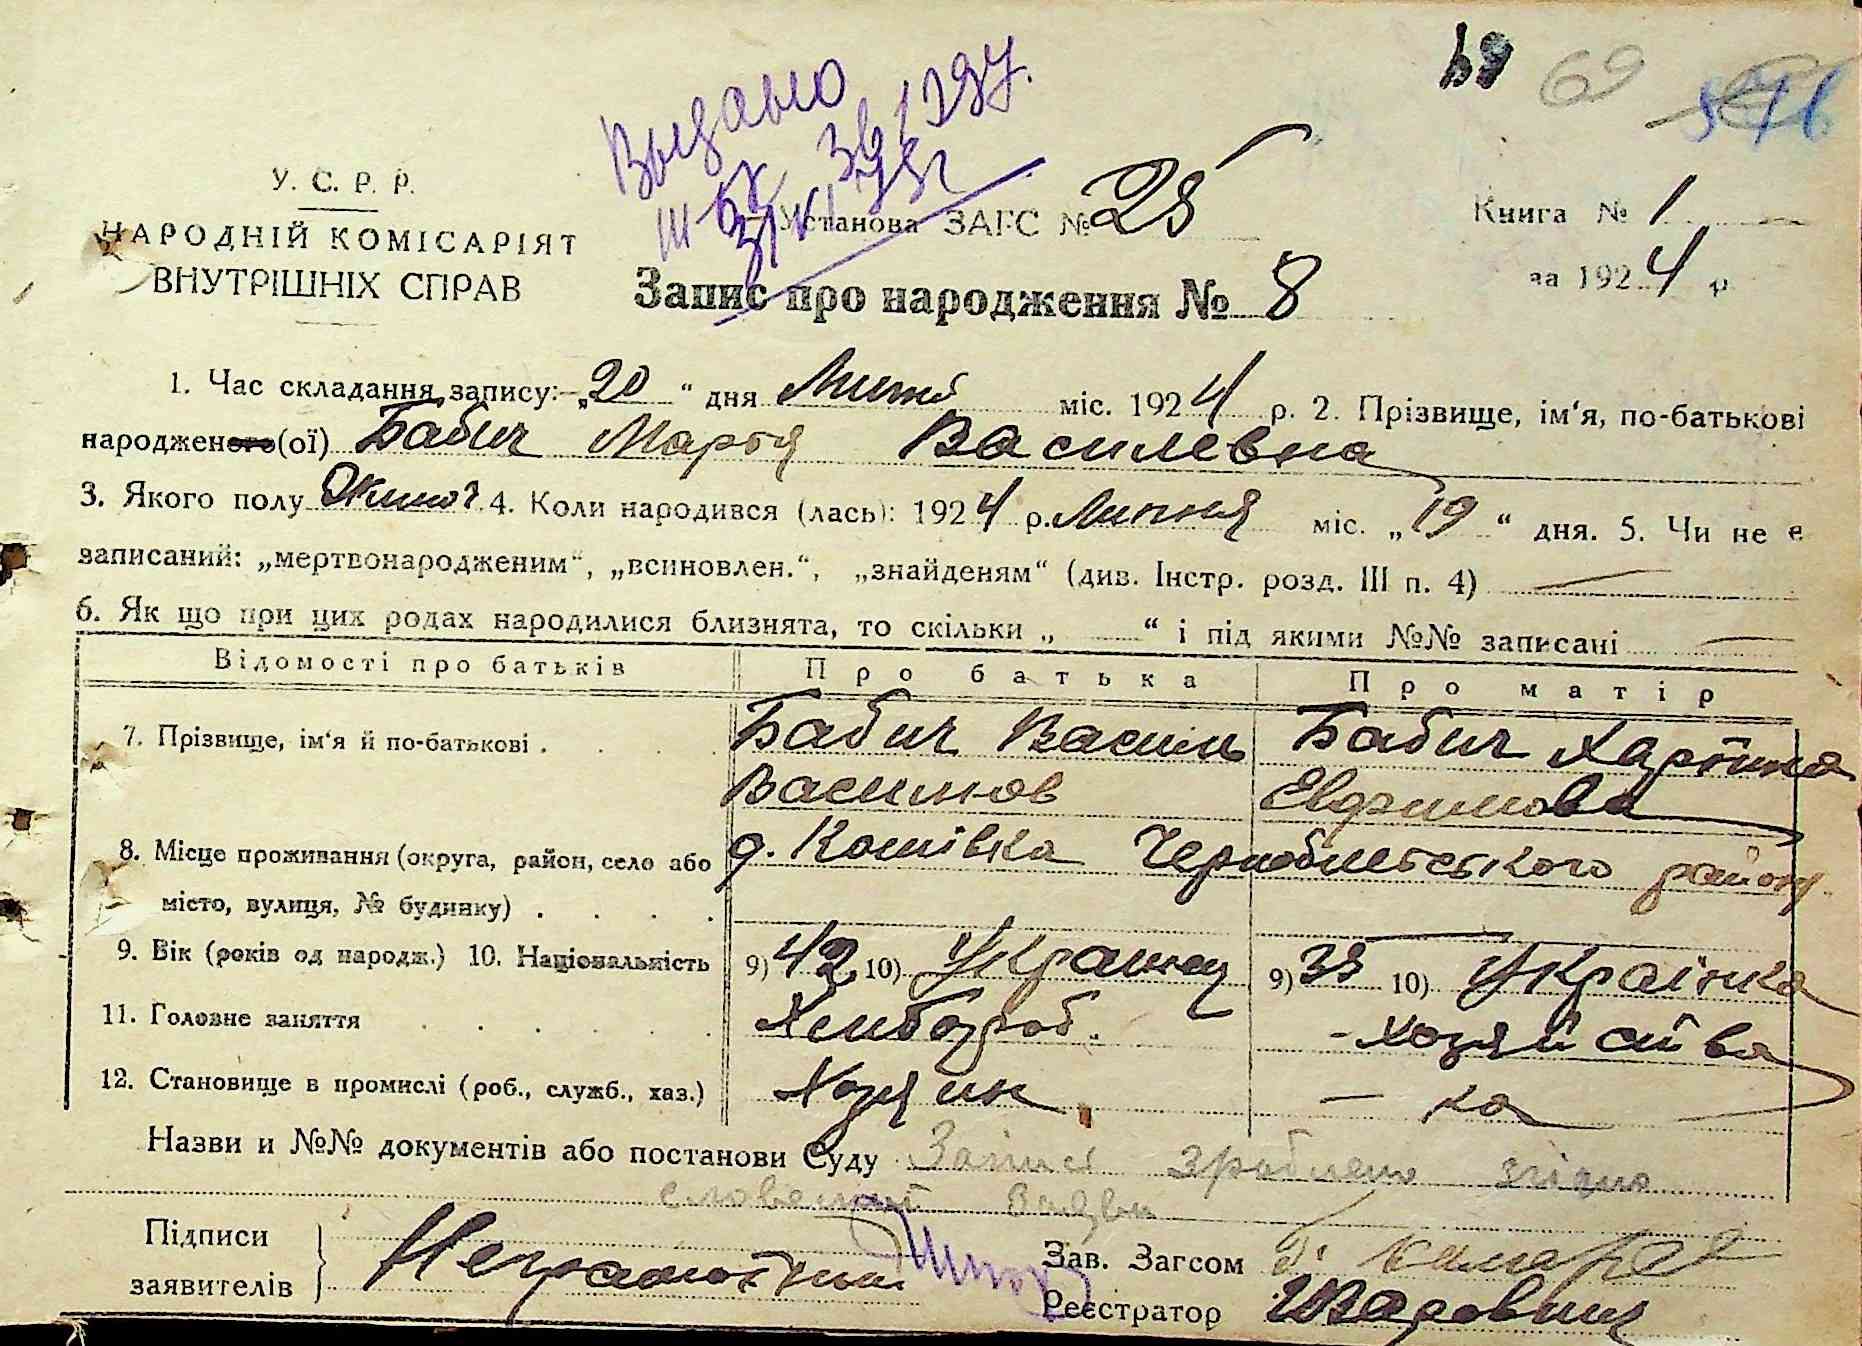 69 69
Выдано
У. С. Р. Р.
НАРОДНІЙ КОМІСАРІЯТ
ВНУТРІШНІХ СПРАВ
Установа ЗАГС № 25
Книга № 1
за 1924 р
Запис про народження № 8
1. Час складання запису: „20“ дня міс. 1924 р. 2. Прізвище, ім‘я, по-батькові
народженого(ої) Бабич Марія Василевна
3. Якого полу Жіноч. 4. Коли народився (лась): 1924 р. Липня міс. „19“ дня. 5. Чи не є
записаний: „мертвонародженим“, „всиновлен.“, „знайденям“ (див. Інстр. розд. III п. 4)
6. Як що при цих родах народилися близнята, то скільки „ “ і під якими №№ записані
Відомості про батьків Про батька Про матір
7. Прізвище, ім‘я й по-батькові . Бабич Василь Бабич Харітина
Василіов Евфимова
8. Місце проживання (округа, район, село або д. Кошівка Чернобильського району
місто, вулиця, № будинку)
9. Вік (років од народж.) 10. Національність 9) 42 10) Украінец 9) 33 10) Украінка
11. Головне заняття Хлибороб. - хозяйства
12. Становище в промислі (роб., служб., хаз.) Хозяин — ка
Назви и №№ документів або постанови Суду Запись зроблено згідно
словесной заяви
Підписи
заявителів Неграмотний
Зав. Загсом
Реєстратор